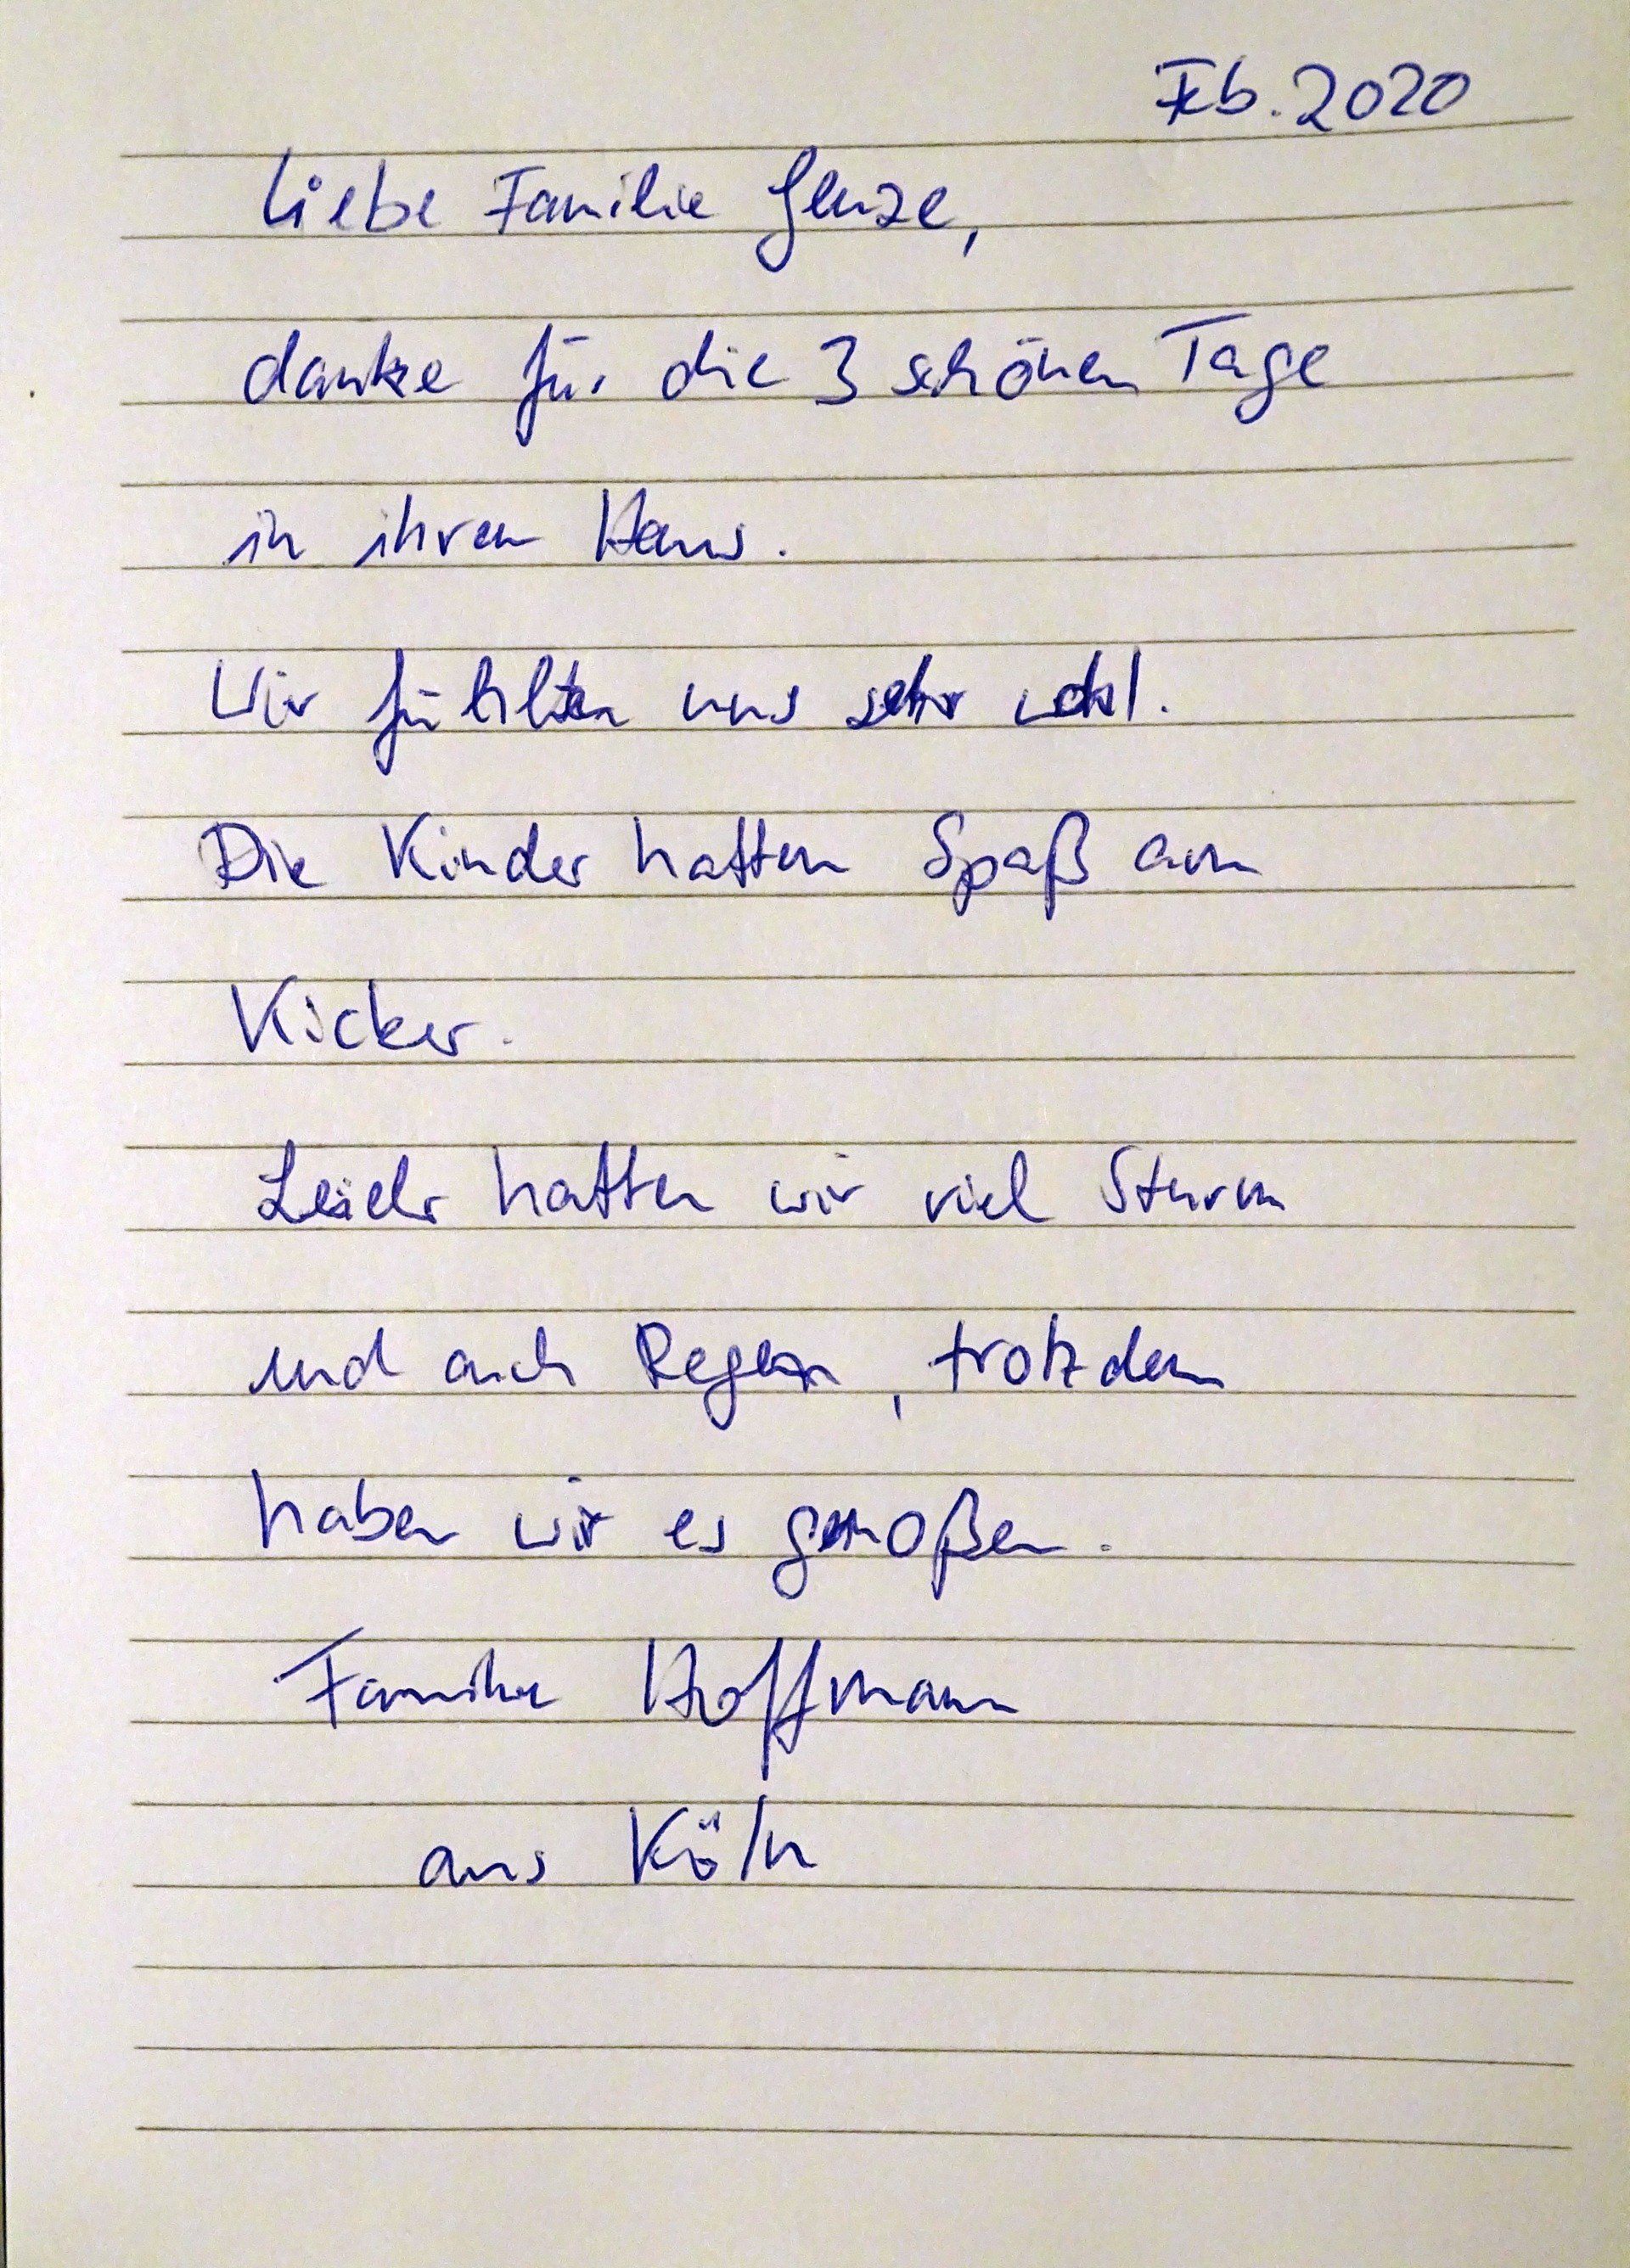 Feb. 2020
Liebe Familie
danke für die 3 schönen Tage
in ihrem Haus.
Wir fühlten uns sehr wohl.
Die Kinder hatten Spaß am
Kicker.
Leider hatten wir viel Sturm
und auch Regen, trotzdem
haben wir es genoßen.
Familie Hoffmann
aus Köln